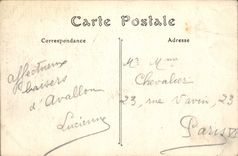 Carte Postale
Correspondance
Adresse
affectueux
baisers
d'Avallon
Lucienne
Mr Mme
Chevalier
23, rue Vavin, 23
Paris